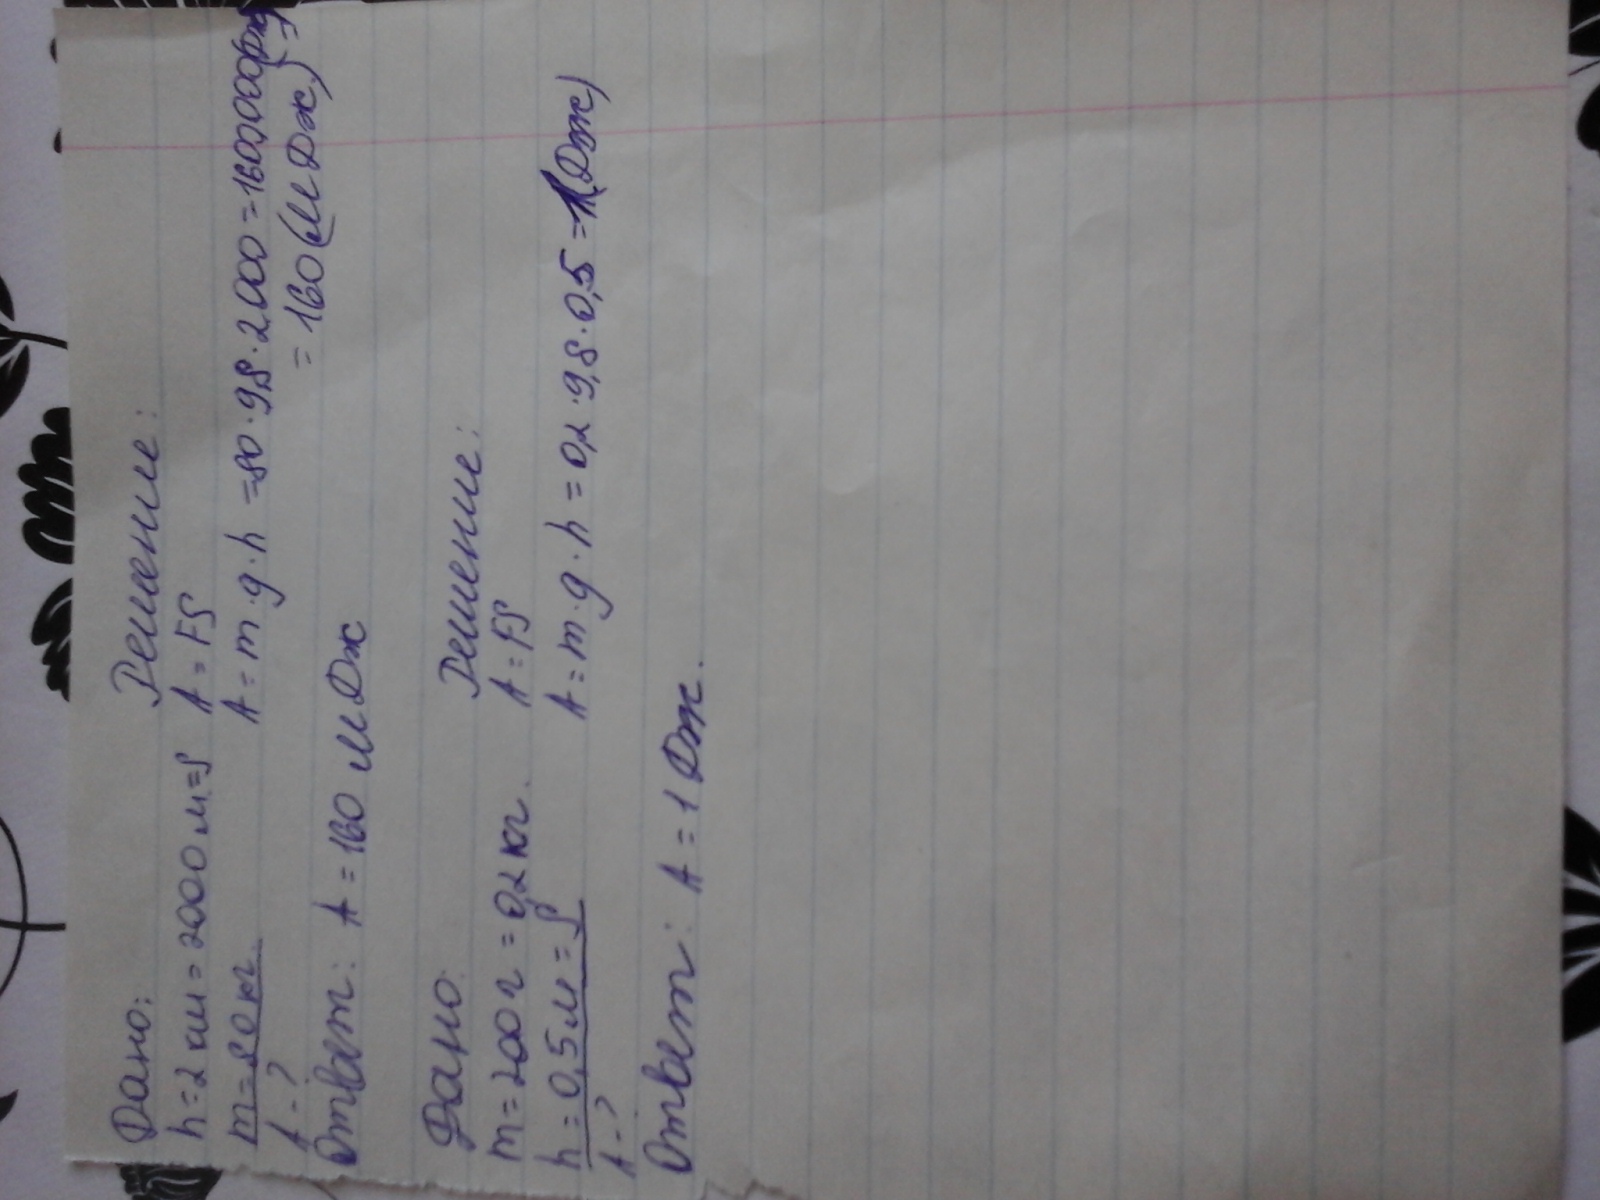 Дано: Решение:
h=2 км=2000 м=S A=FS
m=80 кг. A=m·g·h =80·9,8·2000=160,000(Дж)=
A-? =160(МДж)
Ответ: A=160 МДж
Дано: Решение:
m=200 г=0,2 кг. A=FS
h=0,5 м=S A=m·g·h=0,2·9,8·0,5=1(Дж)
A-?
Ответ: A=1 Дж.